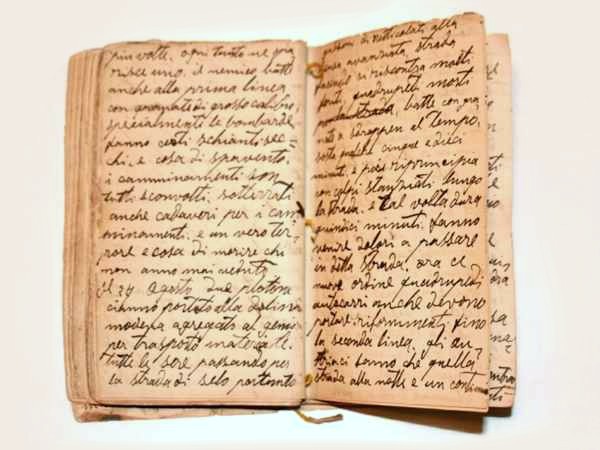 piu volte, ogni tanto ne
risce uno, il nemico batte
anche alla prima linea
con granate di grosso calibro,
specialmente le bombarde
fanno certi schianti sec=
chi, e cosa di spavento,
i camminamenti son
tutti sconvolti, sotterrati
anche cadaveri per i cam
minamenti, e un vero ter=
rore e cosa di morire chi
non anno mai veduto
il 24 agosto due plotoni
ci anno portato alla dolina
modena agregati al genio
per trasporto materiale.
tutte le sere passando per
la strada di selo portanto
di reticolati alla
linea avanzata, strada
si riscontra molti
feriti, quadrupeti morti
batte con gra
nate a schrappen el tempo,
sosta qualche cinque e dieci
minuti, e poi riprincipia
con colpi slanciati lungo
la strada, e tal volta dura
quindici minuti fanno
venire dolori a passare
in detta strada, ora ce
nuovo ordine quadrupedi
autocarri anche devono
portare rifornimenti fino
la seconda linea, gli au=
striaci fanno che quella
strada alla notte e un continuo